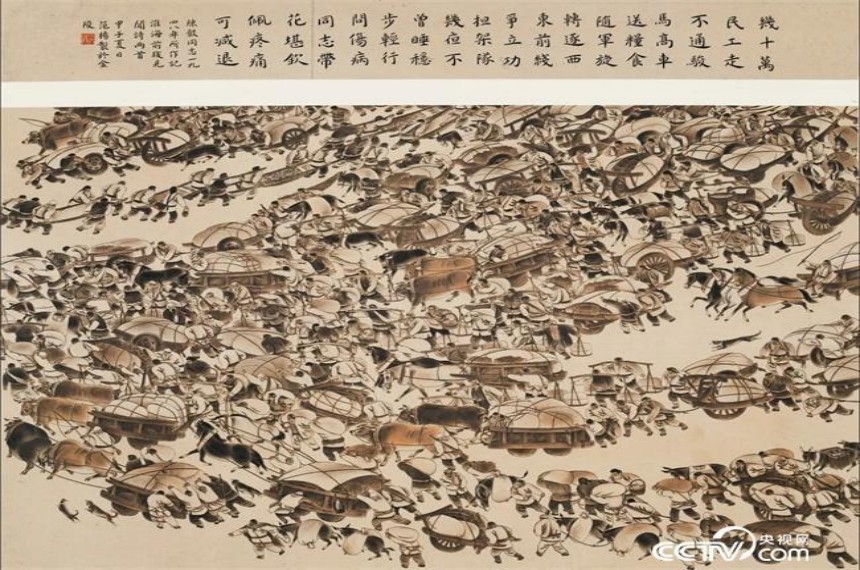 幾十萬
民工走
不通駿
馬高車
送糧食
隨軍旋
轉逐西
東前綫
爭立功
担架隊
幾亱不
曾睡穩
步輕行
問傷病
同志帶
花堪欽
佩疼痛
可減退
陳毅同志一九
四八年所作記
淮海前綫見
聞詩兩首
甲子夏日
范揚製於金
陵
CCTV.com 央视网